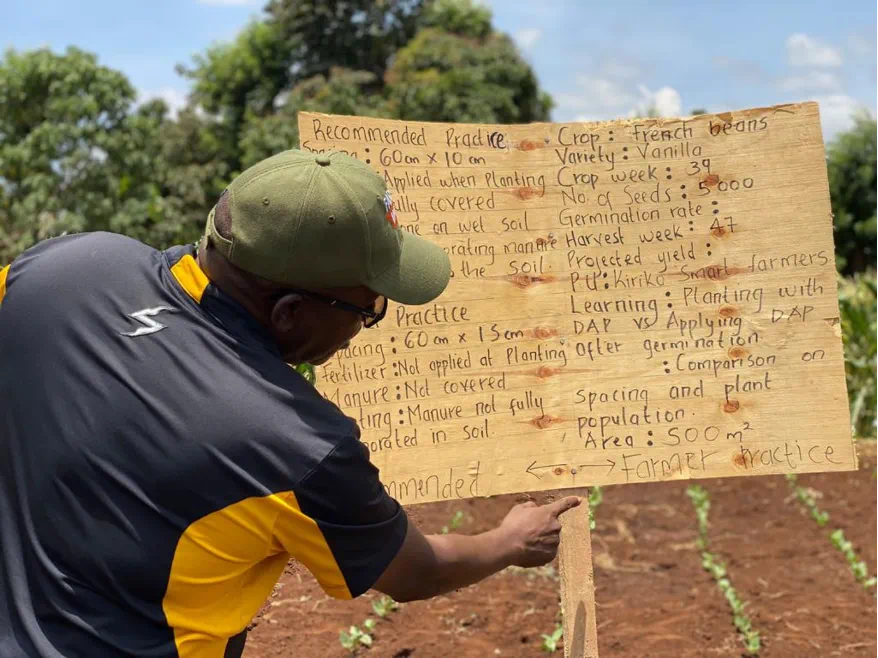 Recommended Practice
: 60cm x 10cm
Applied when Planting
covered
on wet soil
manure
the soil
Practice
Spacing : 60cm x 15cm
Fertilizer : Not applied at Planting
Manure : Not covered
: Manure not fully
in soil
Crop : French beans
Variety : Vanilla
Crop week : 39
No. of Seeds : 5000
Germination rate :
Harvest week : 47
Projected yield :
: Kiriko Smart farmers
Learning : Planting with
DAP vs Applying DAP
after germination
: Comparison on
spacing and plant
population.
Area : 500m²
↔ Farmer Practice